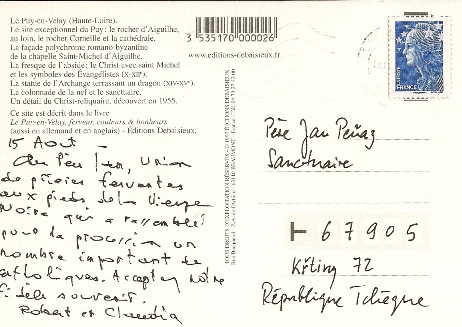 Le Puy-en-Velay (Haute-Loire).
Le site exceptionnel du Puy: le rocher d'Aiguilhe,
au loin, le rocher Corneille et la cathédrale.
La façade polychrome romano-byzantine
de la chapelle Saint-Michel d'Aiguilhe.
La fresque de l'abside: le Christ avec saint Michel
et les symboles des Évangélistes (X-XIIe).
La statue de l'Archange terrassant un dragon (XIV-XVe).
La colonnade de la nef et le sanctuaire.
Un détail du Christ-reliquaire, découvert en 1955.
Ce site est décrit dans le livre
Le Puy-en-Velay, ferveur, couleurs & bonheurs
(aussi en allemand et en anglais) - Editions Debaisieux.
15 Août -
Au Puy en, Union
de prières ferventes
aux pieds de la Vierge
Noire qui a rassemblé
pour la procession un
nombre important de
catholiques. Acceptez notre
fidèle souvenir.
Robert et Claudia
3 535170 000026
www.editions-debaisieux.com
TOUS DROITS D'EXPLOITATION RÉSERVÉS - © 1997 EDITIONS DEBAISIEUX
FRANCE
Père Jan Peňáz
Sanctuaire
67905
Křtiny 72
République Tchèque